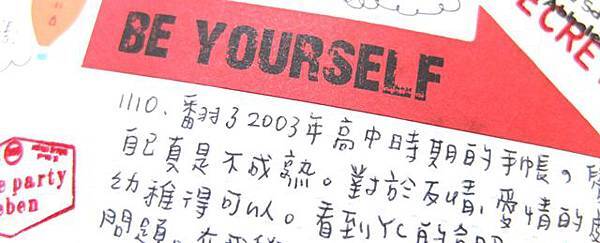 BE YOURSELF
1110、翻了2003年高中時期的手帳,
自己真是不成熟。對於友情,愛情的
幼稚得可以。看到YC的
問題。
ECRE
e party
eben